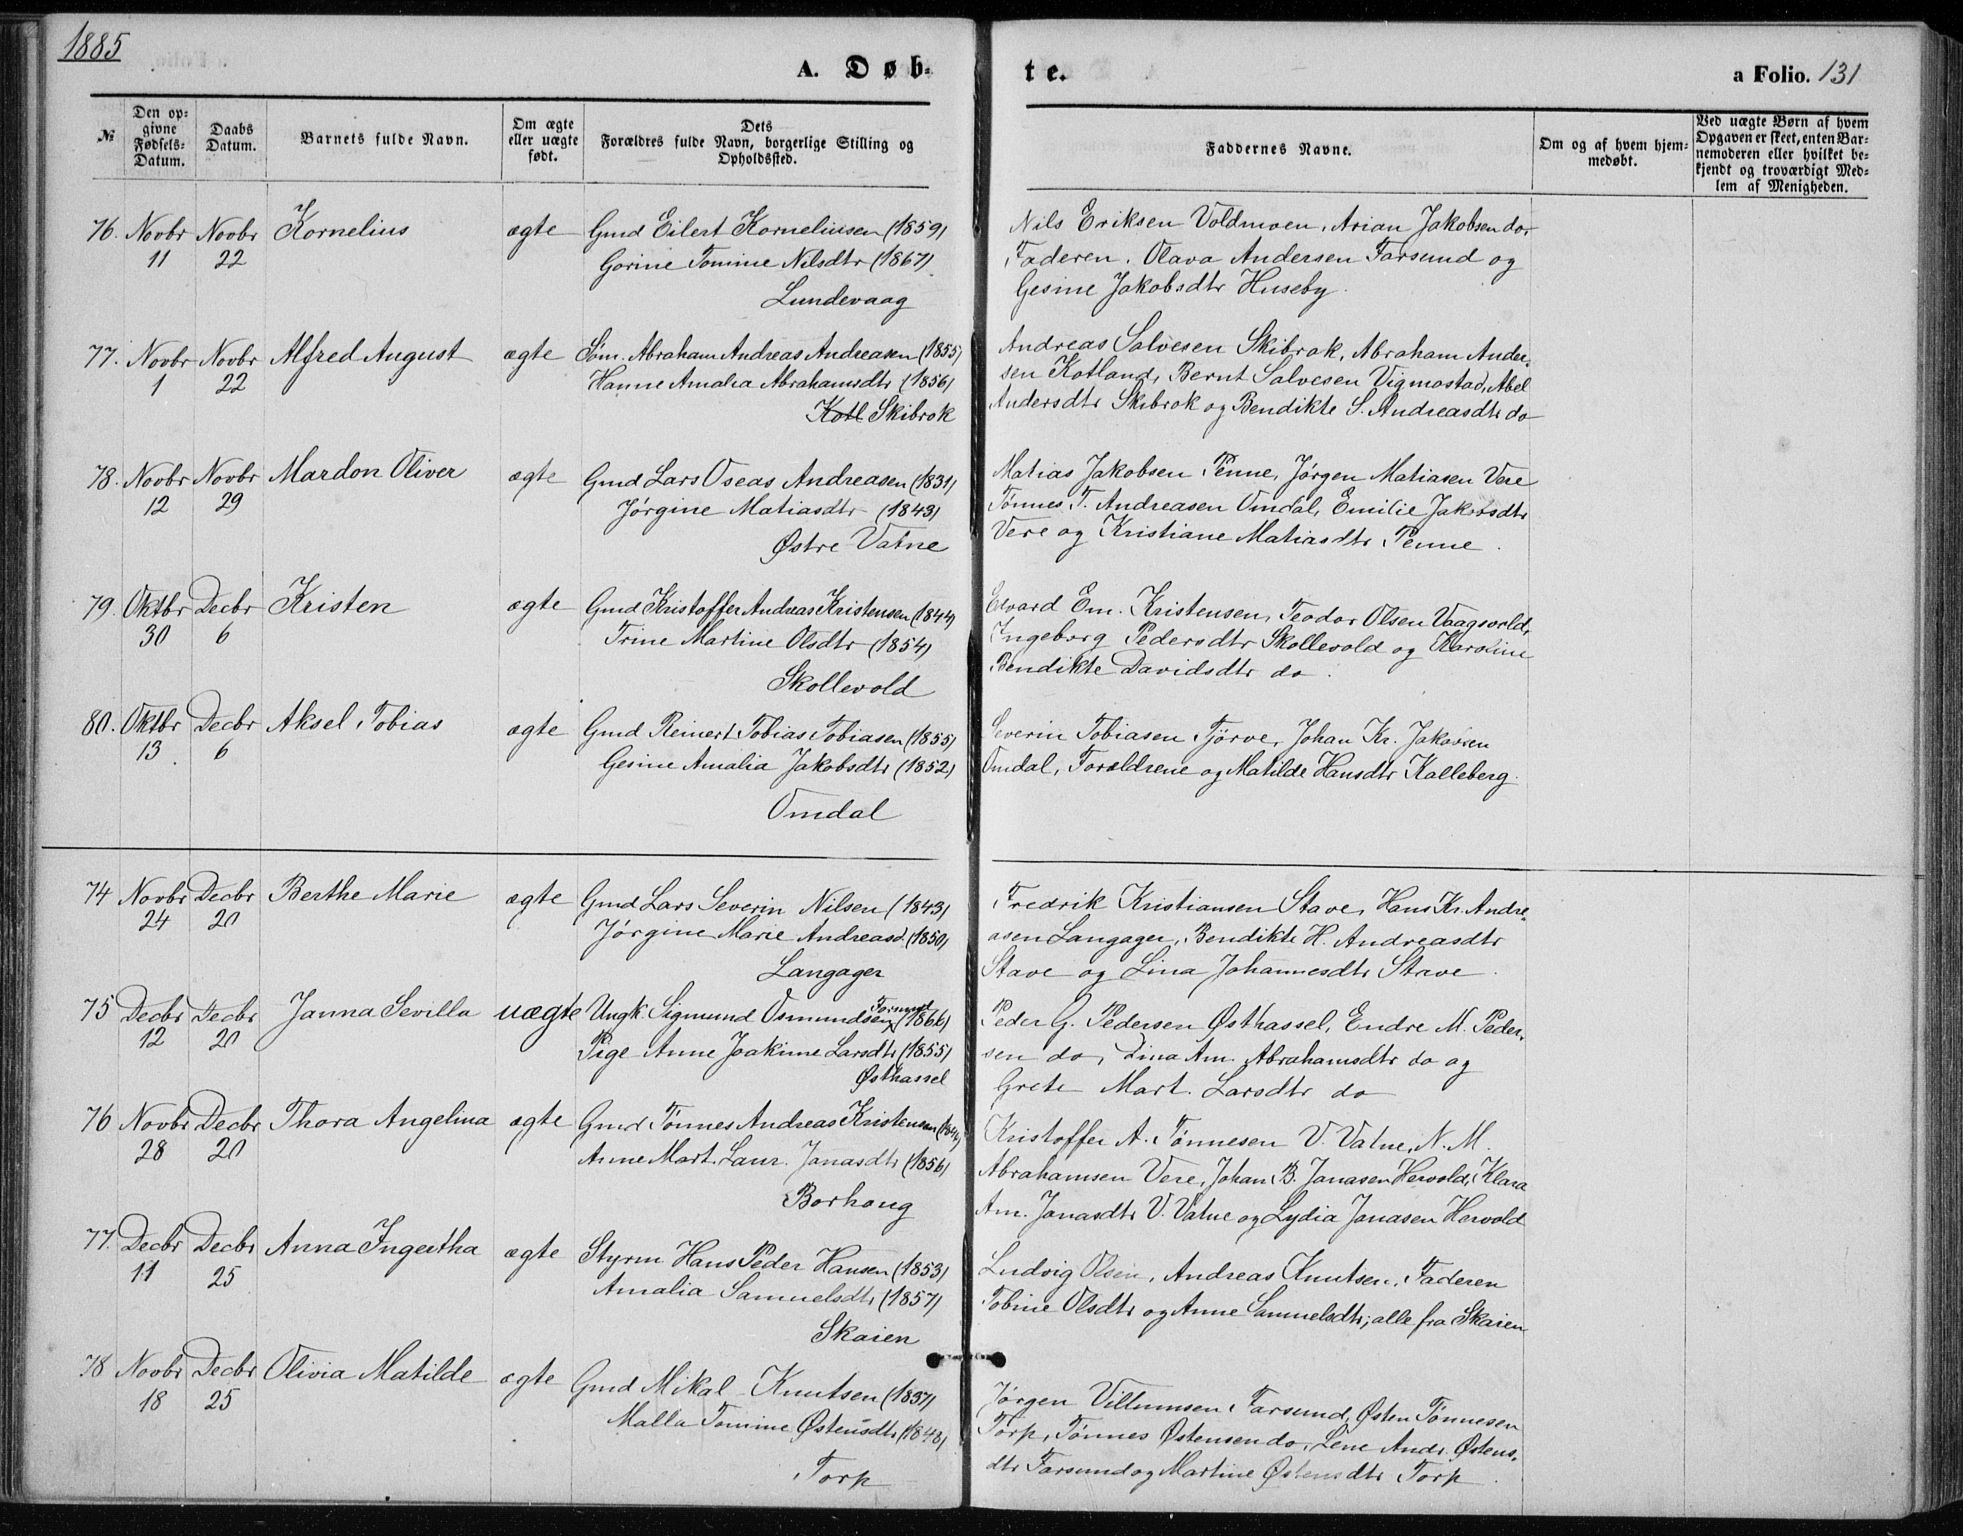 1885
A. Døb-
te.
a Folio. 131
№
Den op-
givne
Fødsels-
Datum.
Daabs
Datum.
Barnets fulde Navn.
Om ægte
eller uægte
født.
Dets
Forældres fulde Navn, borgerlige Stilling og
Opholdssted.
Faddernes Navne.
Om og af hvem hjem-
medøbt.
Ved uægte Børn af hvem
Opgaven er skeet, enten Bar-
nemoderen eller hvilket be-
kjendt og troværdigt Med-
lem af Menigheden.
76. Novbr 11 Novbr 22 Kornelius ægte Gmd Eilert Korneliusen (1859)
Gorine Tomine Nilsdtr (1867)
Lundevaag
Nils Eriksen Voldmoen, Arian Jakobsen do
Faderen, Olava Andersen Farsund og
Gesine Jakobsdtr Huseby.
77. Novbr 1 Novbr 22 Alfred August ægte Søm. Abraham Andreas Andreasen (1855)
Hanne Amalia Abrahamsdtr (1856)
Kotl Skibrok
Andreas Salvesen Skibrok, Abraham Ander-
sen Kotland, Bernt Salvesen Vigmostad, Abel
Andersdtr Skibrok og Bendikte S. Andreasdtr do
78. Novbr 12 Novbr 29 Mardon Oliver ægte Gmd Lars Oseas Andreasen (1831)
Jørgine Matiasdtr (1843)
Østre Vatne
Matias Jakobsen Penne, Jørgen Matiasen Vere
Tønnes T. Andreasen Omdal, Emilie Jakobsdtr
Vere og Kristiane Matiasdtr Penne.
79. Oktbr 30 Decbr 6 Kristen ægte Gmd Kristoffer Andreas Kristensen (1844)
Trine Martine Olsdtr (1854)
Skollevold
Edvard Em. Kristensen, Teodor Olsen Vaagsvold,
Ingeborg Pedersdtr Skollevold og Karoline
Bendikte Davidsdtr do.
80. Oktbr 13 Decbr 6 Aksel Tobias ægte Gmd Reinert Tobias Tobiasen (1855)
Gesine Amalia Jakobsdtr (1852)
Omdal
Severin Tobiasen Tjørve, Johan Kr. Jakobsen
Omdal, Forældrene og Matilde Hansdtr Kalleberg.
74 Novbr 24 Decbr 20 Berthe Marie ægte Gmd Lars Severin Nilsen (1843)
Jørgine Marie Andreasd (1850)
Langager
Fredrik Kristiansen Stave, Hans Kr. Andre-
asen Langager, Bendikte H. Andreasdtr
Stave og Lina Johannesdtr Stave.
75 Decbr 12 Decbr 20 Janna Sevilla uægte Ungk. Sigmund Osmundsen (1866)
Pige Anne Joakime Larsdtr (1855)
Østhassel
Peder G. Pedersen Østhassel, Endre M. Peder-
sen do, Lina Am. Abrahamsdtr do og
Grete Mart. Larsdtr do
76 Novbr 28 Decbr 20 Thora Angelina ægte Gmd Tønnes Andreas Kristensen
Anne Mart. Laur. Jonasdtr (1856)
Borhoug
Kristoffer A. Tønnesen V. Vatne, N. M.
Abrahamsen Vere, Johan B. Jonasen Hervold, Klara
Am. Jonasdtr V. Vatne og Lydia Jonasen Hervold
77. Decbr 11 Decbr 25 Anna Ingertha ægte Styrm Hans Peder Hansen (1853)
Amalia Samuelsdtr (1857)
Skaien
Ludvig Olsen, Andreas Knutsen, Faderen
Tobine Olsdtr og Anne Samuelsdtr; alle fra Skaien
78 Novbr 18 Decbr 25 Olivia Matilde ægte Gmd Mikal Knutsen (1837)
Malla Tomine Østensdtr (1848)
Torp
Jørgen Villumsen Farsund, Østen Tønnesen
Torp, Tønnes Østensen do, Lene Andr. Østens-
dtr Farsund og Martine Østensdtr Torp.